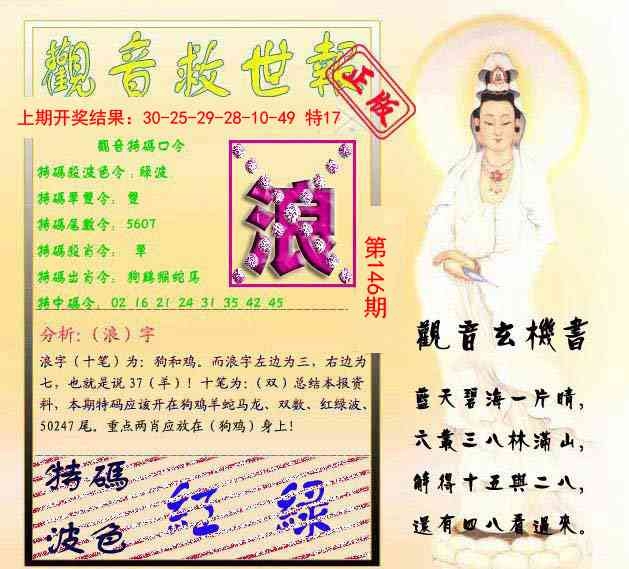 觀音救世報
正版
上期开奖结果：30-25-29-28-10-49 特17
觀音特碼口令
特碼段波色令：綠波
特碼單雙令： 雙
特碼尾數令： 5607
特碼段肖令： 單
特碼出肖令： 狗鷄猴蛇马
特中碼令： 02 16 21 24 31 35 42 45
浪
第146期
分析:（浪）字
浪字（十笔）为：狗和鸡。而浪字左边为三，右边为
七，也就是说 37（羊）！十笔为:（双）总结本报资
料，本期特码应该开在狗鸡羊蛇马龙、双数、红绿波、
50247 尾。重点两肖应放在（狗鸡）身上!
特碼
波色
紅 綠
觀音玄機書
藍天碧海一片晴，
六叢三八林滿山，
解得十五與二八，
還有四八看過來。